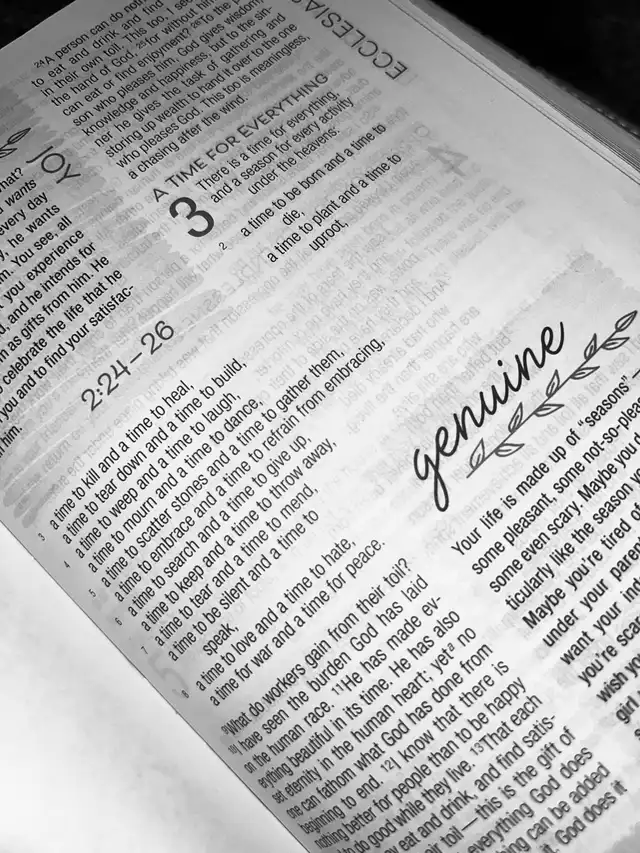 ECCLESIAS
24A person can do noth
to eat and drink and find
in their own toil. This too, I see
the hand of God, 25for without him
can eat or find enjoyment? 26To the
son who pleases him, God gives wisdom,
knowledge and happiness, but to the sin-
ner he gives the task of gathering and
storing up wealth to hand it over to the one
who pleases God. This too is meaningless,
a chasing after the wind.
A TIME FOR EVERYTHING
3 There is a time for everything,
and a season for every activity
under the heavens:
2 a time to be born and a time to
die,
a time to plant and a time to
uproot,
JOY
what?
wants
every day
he wants
m. You see, all
you experience
and he intends for
m as gifts from him. He
celebrate the life that he
you and to find your satisfac-
him.
2:24–26
3 a time to kill and a time to heal,
a time to tear down and a time to build,
4 a time to weep and a time to laugh,
a time to mourn and a time to dance,
5 a time to scatter stones and a time to gather them,
a time to embrace and a time to refrain from embracing,
6 a time to search and a time to give up,
a time to keep and a time to throw away,
7 a time to tear and a time to mend,
a time to be silent and a time to
speak,
8 a time to love and a time to hate,
a time for war and a time for peace.
9What do workers gain from their toil?
10I have seen the burden God has laid
on the human race. 11He has made ev-
erything beautiful in its time. He has also
set eternity in the human heart; yeta no
one can fathom what God has done from
beginning to end. 12I know that there is
nothing better for people than to be happy
to do good while they live. 13That each
eat and drink, and find satis-
their toil—this is the gift of
everything God does
ing can be added
God does it
genuine
Your life is made up of “seasons”—
some pleasant, some not-so-pleas
some even scary. Maybe you d
ticularly like the season y
Maybe you're tired of
under your paren
want your in
you're scar
wish y
girl